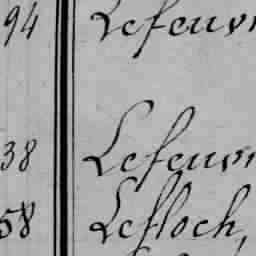 94 Lefeuvr
38 Lefeuvr
58 Lefloch,